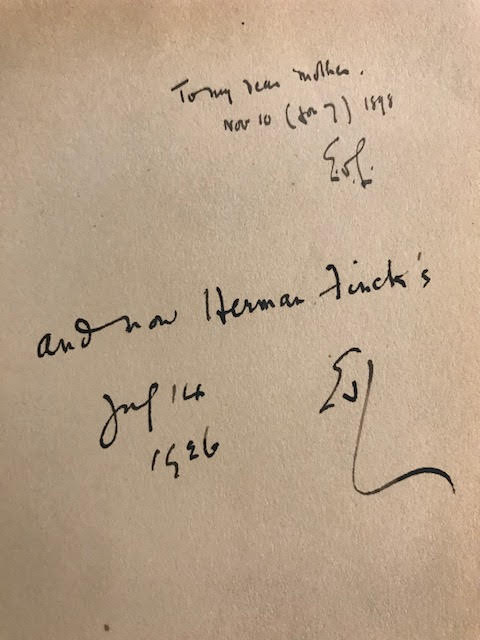 To my dear mother.
Nov 10 (for 7) 1898
E.V.L.
and now Herman Finck's
July 14
1926
EVL